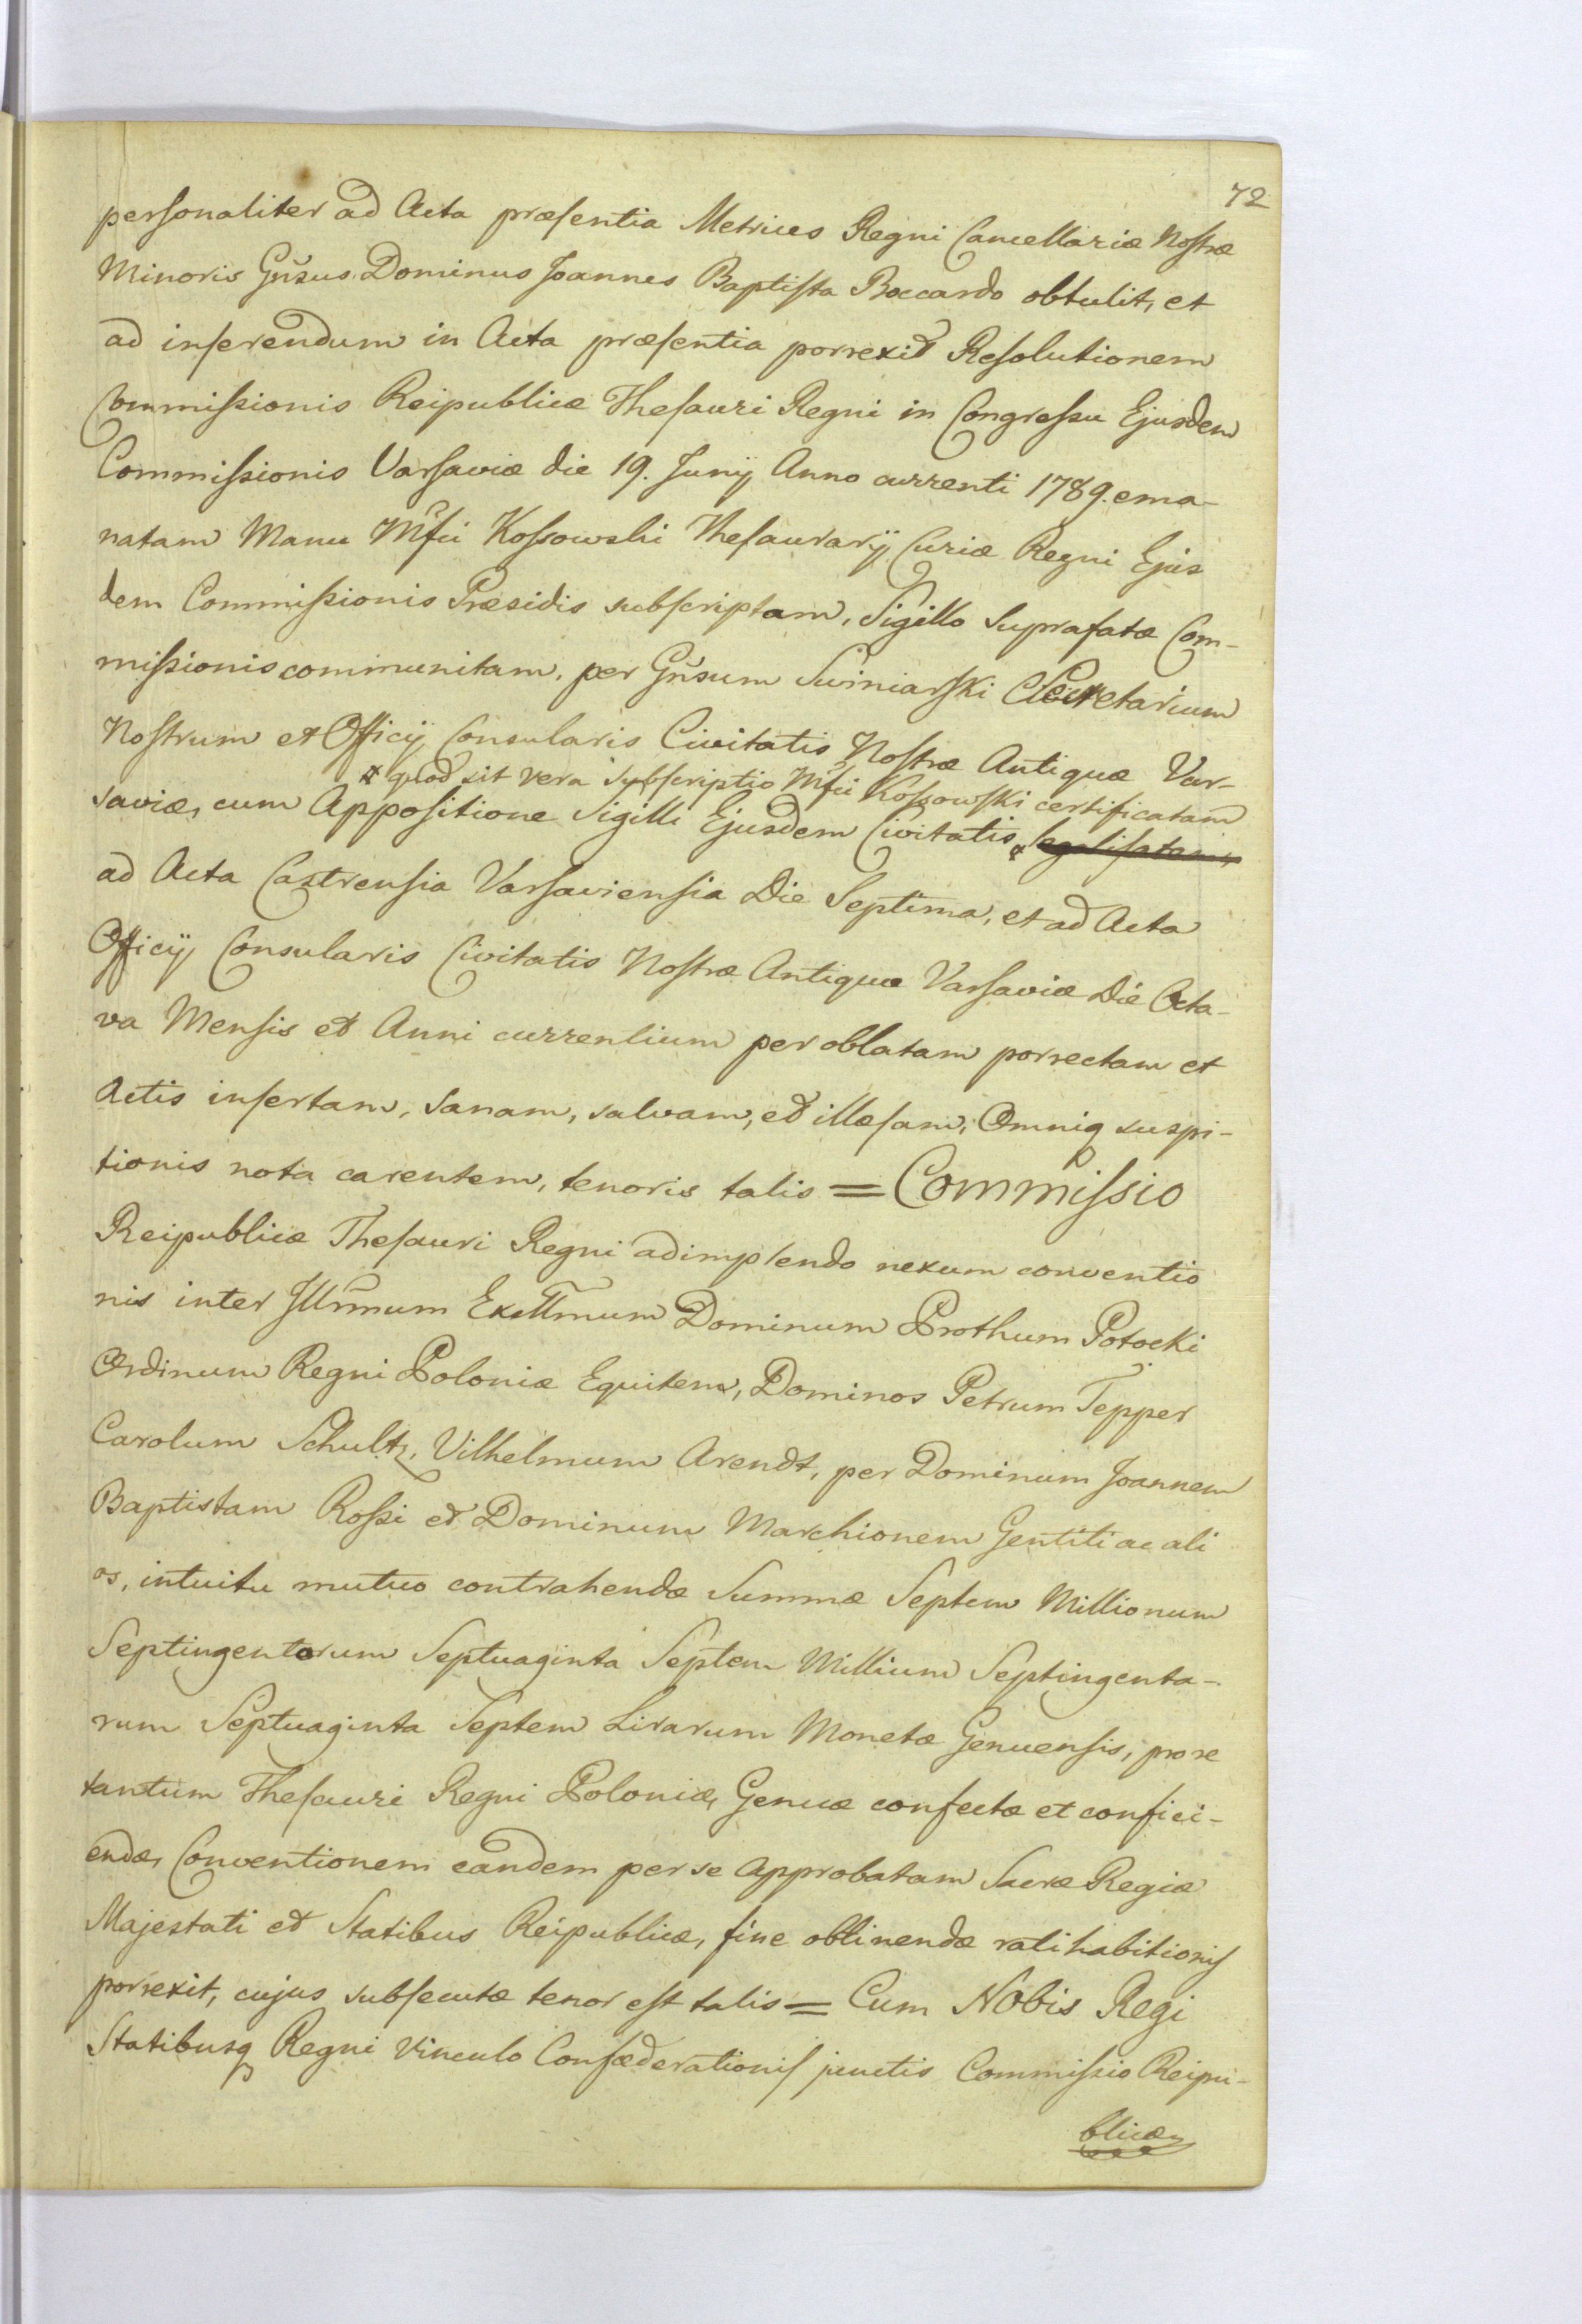 72
personaliter ad Acta præsentia Metrices Regni Cancellariæ Nostræ
Minoris Gñsus Dominus Joannes Baptista Boccardo obtulit, et
ad inserendum in Acta præsentia porrexit Resolutionem
Commissionis Reipublicæ Thesauri Regni in Congressu Ejusdem
Commissionis Varsaviæ die 19. Junij Anno currenti 1789. ema-
natam Manu Mfci Kossowski Thesaurarij Curiæ Regni Ejus
dem Commissionis Præsidis subscriptam, Sigillo Suprafatæ Com-
missionis communitam, per Gñsum Swiniarski Secretarium
Nostrum et Officij Consularis Civitatis Nostræ Antiquæ Var-
quod sit vera Subscriptio Mfci Kossowski certificatam
saviæ, cum Appositione Sigilli Ejusdem Civitatis legalisatam
ad Acta Castrensia Varsaviensia Die Septima, et ad Acta
Officij Consularis Civitatis Nostræ Antiquæ Varsaviæ Die Octa-
va Mensis et Anni currentium per oblatam porrectam et
Actis insertam, sanam, salvam, et illæsam, Omniq suspi-
tionis nota carentem, tenoris talis = Commissio
Reipublicæ Thesauri Regni adimplendo nexum conventio
nis inter Illm̃um Excllm̃um Dominum Prothum Potocki
Ordinum Regni Poloniæ Equitem, Dominos Petrum Tepper
Carolum Schultz, Vilhelmum Arendt, per Dominum Joannem
Baptistam Rossi et Dominum Marchionem Gentili ac ali
os, intuitu mutuo contrahendæ Summæ Septem Millionum
Septingentorum Septuaginta Septem Millium Septingenta-
rum Septuaginta Septem Lirarum Monetæ Genuensis, pro re
tantum Thesauri Regni Poloniæ, Genuæ confectæ et confici-
endæ, Conventionem eandem per se Approbatam Sacræ Regiæ
Majestati et Statibus Reipublicæ, fine obtinendæ ratihabitionis
porrexit, cujus subsecutæ tenor est talis = Cum Nobis Regi
Statibusq Regni Vinculo Confæderationis junctis Commissio Reipu-
blicæ